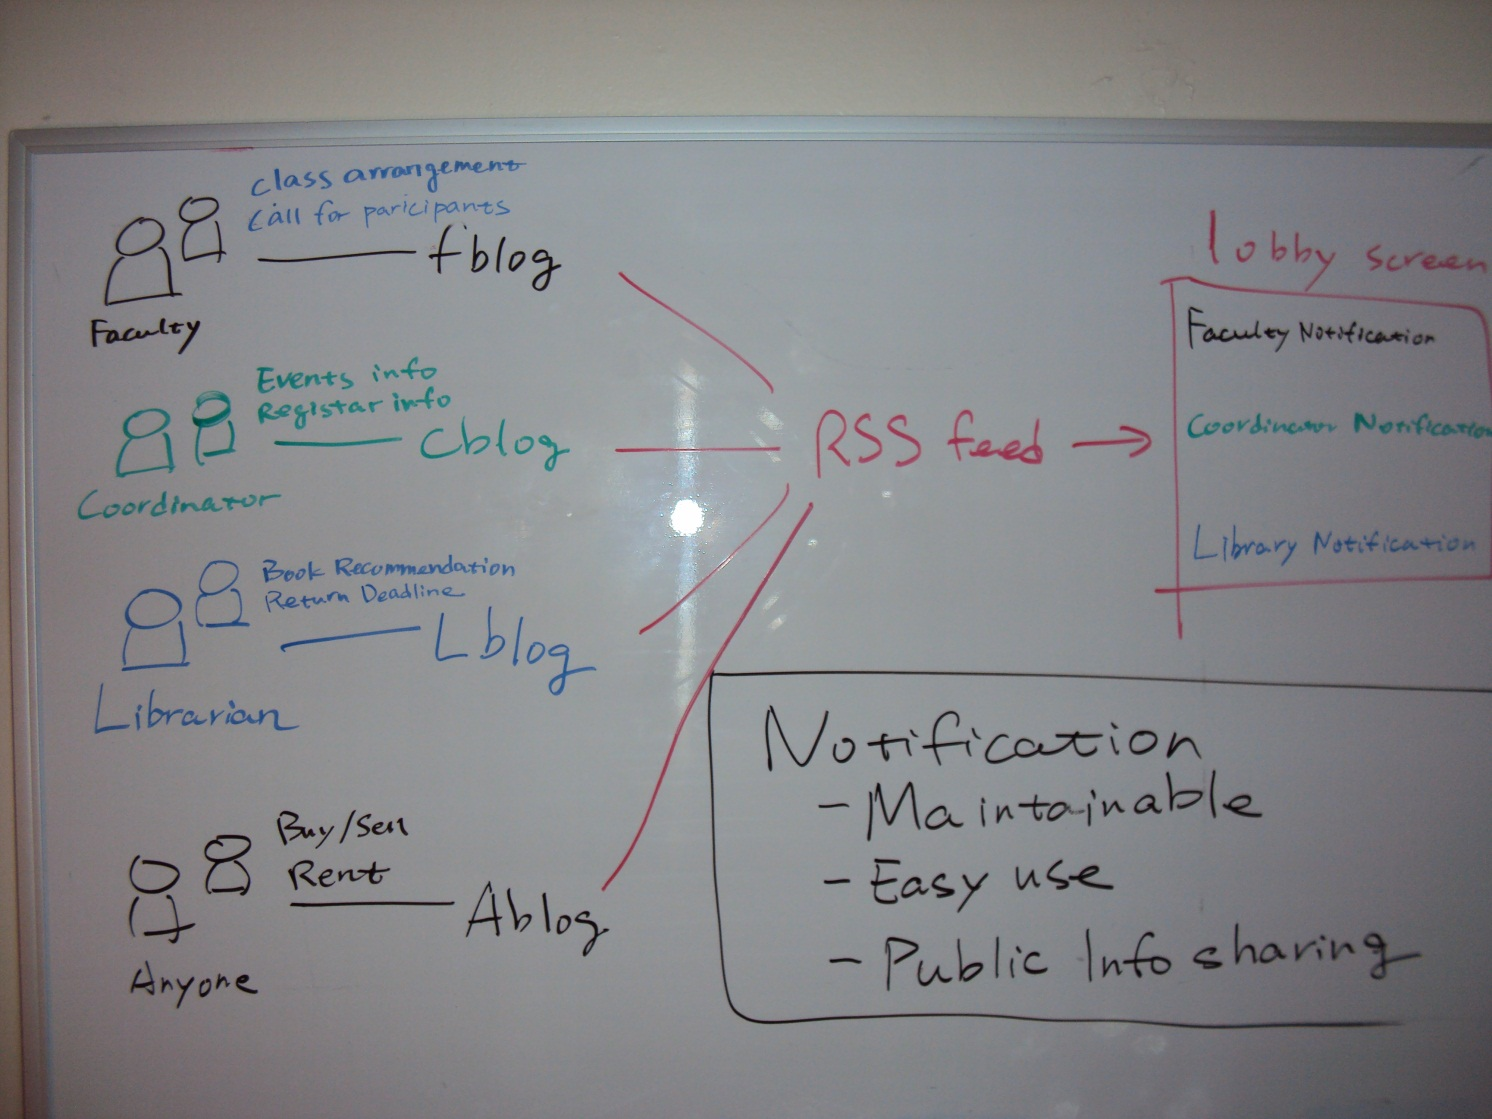 class arrangement
Call for paricipants
fblog
Faculty
Events info
Registar info
Cblog
Coordinator
Book Recommendation
Return Deadline
Lblog
Librarian
Buy/Sell
Rent
Ablog
Anyone
RSS feed
lobby screen
Faculty Notification
Coordinator Notification
Library Notification
Notification
- Maintainable
- Easy use
- Public Info sharing